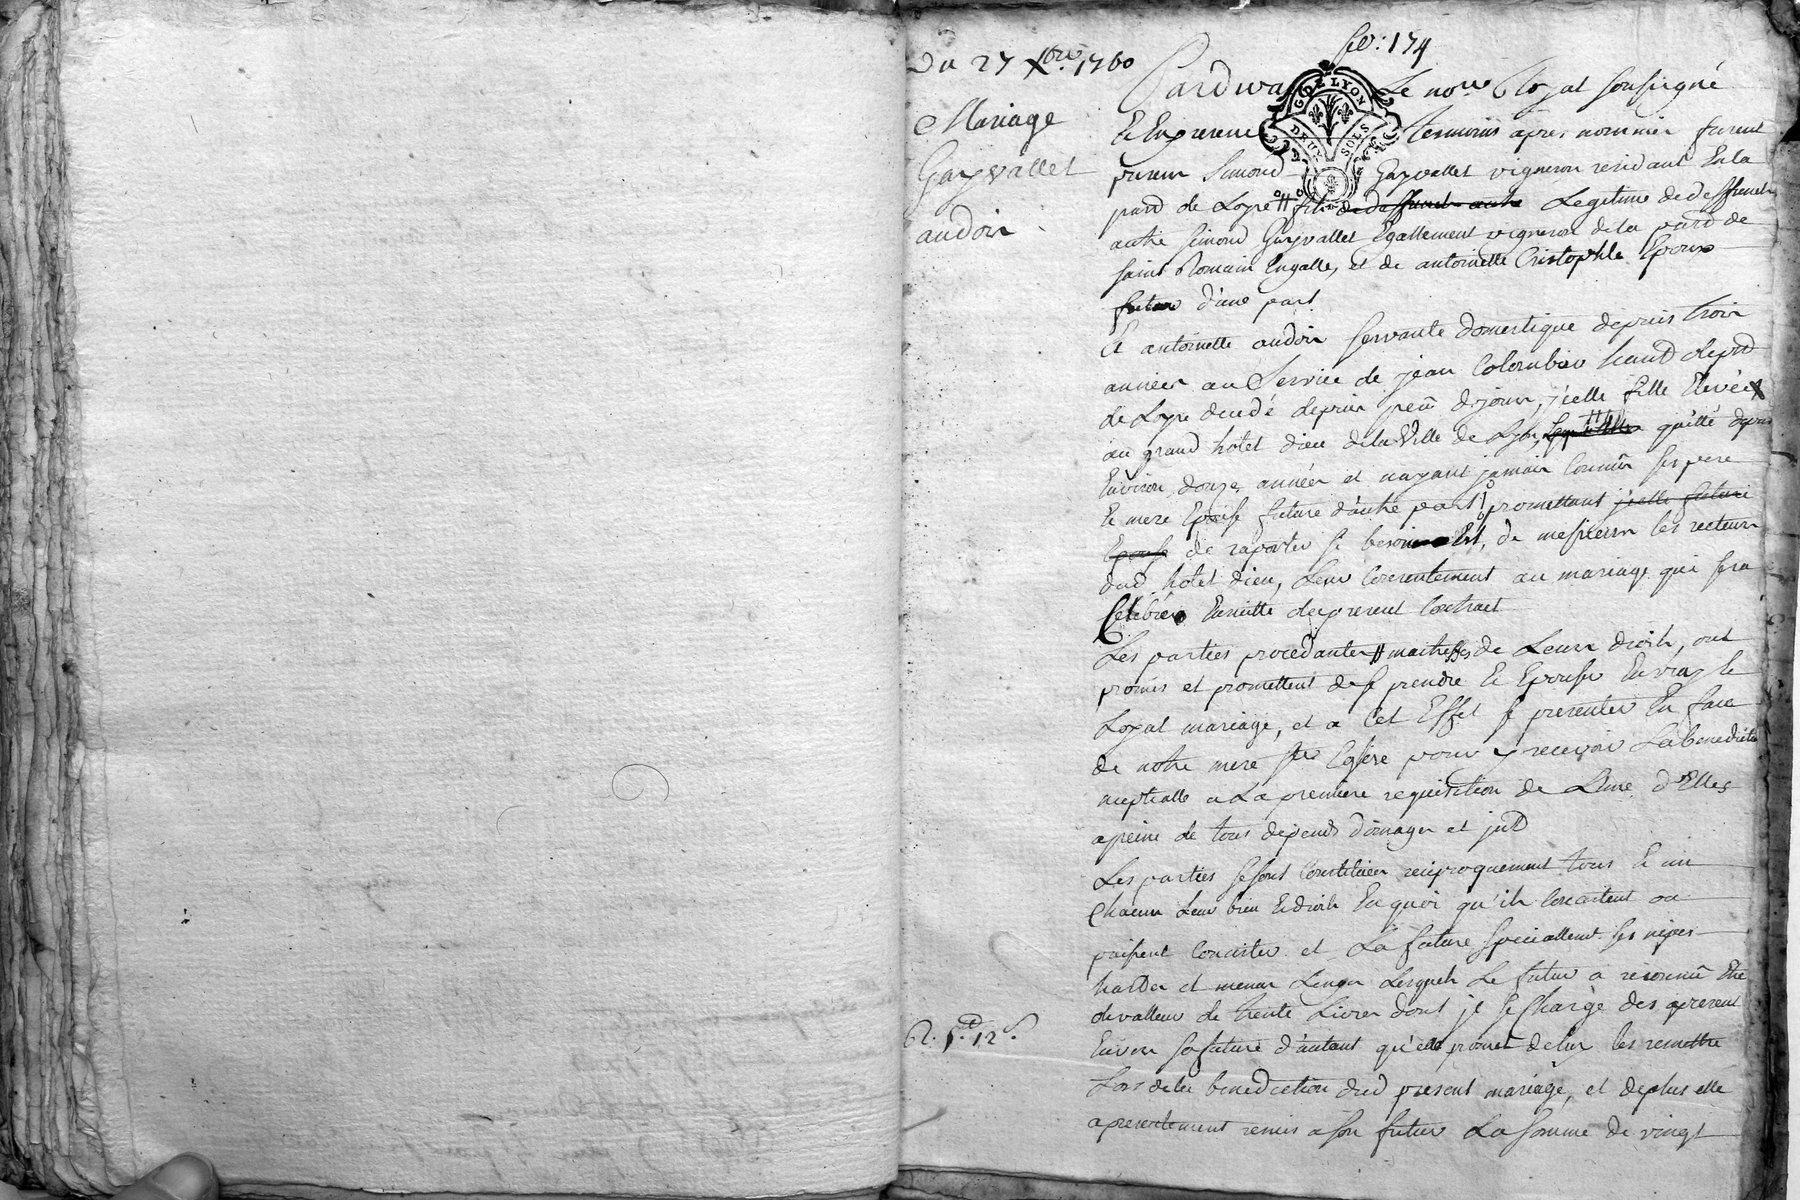 fol: 174
Du 27 Xbre 1760
Mariage
Guyvallet
audoin
G. DE LYON
DEUX SOLS
Pardevant Le nore Royal soussigné
Et En presence temoins apres nommés furent
presents Simond Guyvallet vigneron residant En la
paroisse de Loyre # fils de deffunct autre Legitime de deffunct
autre Simond Guyvallet Egallement vigneron de la paroisse de
saint Romain Engalle, et de antoinette Cristophle Epoux
futur d'une part
Et antoinette audoin servante domestique depuis trois
années au Service de jean Colombier
de Loyre decedé depuis peu de jours, icelle fille Elevée
au grand hotel dieu de la Ville de Lyon, quitté depuis
Environ douze années et n'ayant jamais Connu ses pere
Et mere Epouse future d'autre part promettant jcelle future
Epouse de raporter se besoin Est, de messieurs les recteurs
dud hotel dieu, Leur Consentement au mariage qui sera
Celebré Ensuitte du present Contract
Les parties procedantes # maitresses de Leurs droits, ont
promis et promettent de se prendre Et Epouser En vray Et
Loyal mariage, et a Cet Effet se presenter En face
de notre mere ste Eglise pour y recevoir La benediction
nuptialle a La premiere requisition de L'une d'Elles
a peine de tous depends domages et
Les parties se sont Constituées reciproquement tous Et un
Chacun Leur bien Et droits En quoi qu'ils Consistent ou
puissent Consister et La future specialement ses nipes
hardes et menus Linges Lesquels Le futur a reconnu Etre
de valleur de trente Livres dont il se Charge des apresent
Envers sa future d'autant qu'elle promet de luy les remettre
Lors de la benediction dud present mariage, et de plus elle
a presentement remis a son futur La somme de vingt